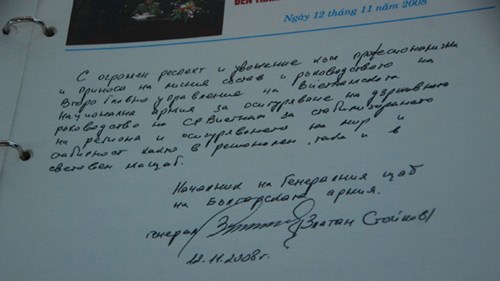 ĐẾN THĂ
Ngày 12 tháng 11 năm 2008
С огромен респект и уважение към професионализма
и приноса на личния състав и ръководството на
Второ главно управление на Виетнамската
Национална армия за осигуряване на държавното
ръководство на СР Виетнам за стабилизирането
на региона и осигуряването на мир и
стабилност както в регионален, така и в
световен мащаб.
Началник на Генералния щаб
на Българската армия.
генерал /Златан Стойков/
12.11.2008г.